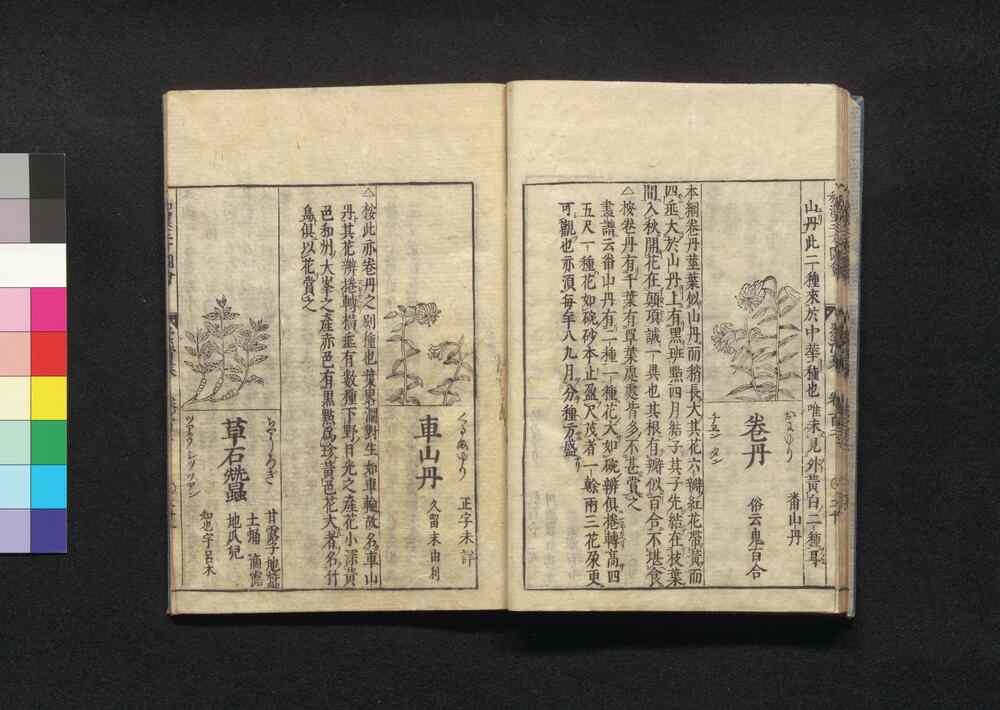 山丹此二種來於中華種也唯未見外黃白二種耳
卷丹
おにゆり
番山丹
俗云鬼百合
チエン タン
本綱卷丹莖葉似山丹而稍長大其花六瓣紅花帶黃而
四垂大於山丹上有黑斑點四月結子其子先結在枝葉
間入秋開花在顛頂誠一異也其根有瓣似百合不堪食
△按卷丹有千葉有單葉處處皆多不甚賞之
畫譜云番山丹有二種一種花大如碗瓣俱捲轉高四
五尺一種花如硃砂本止盈尺茂者一幹兩三花更
可觀也亦須每年八九月分種方盛
車山丹
くるまゆり
正字未詳
久留末由利
△按此亦卷丹之別種也葉畧濶對生如車輪故名車山
丹其花瓣捲轉橫垂有數種下野日光之產花小深黃
色和州大峯之產赤色有黑點爲珍黃色花大者名
俱以花賞之
草石蠶
ちやうろぎ
甘露子 地蠶
土蛹 滴露
地瓜兒